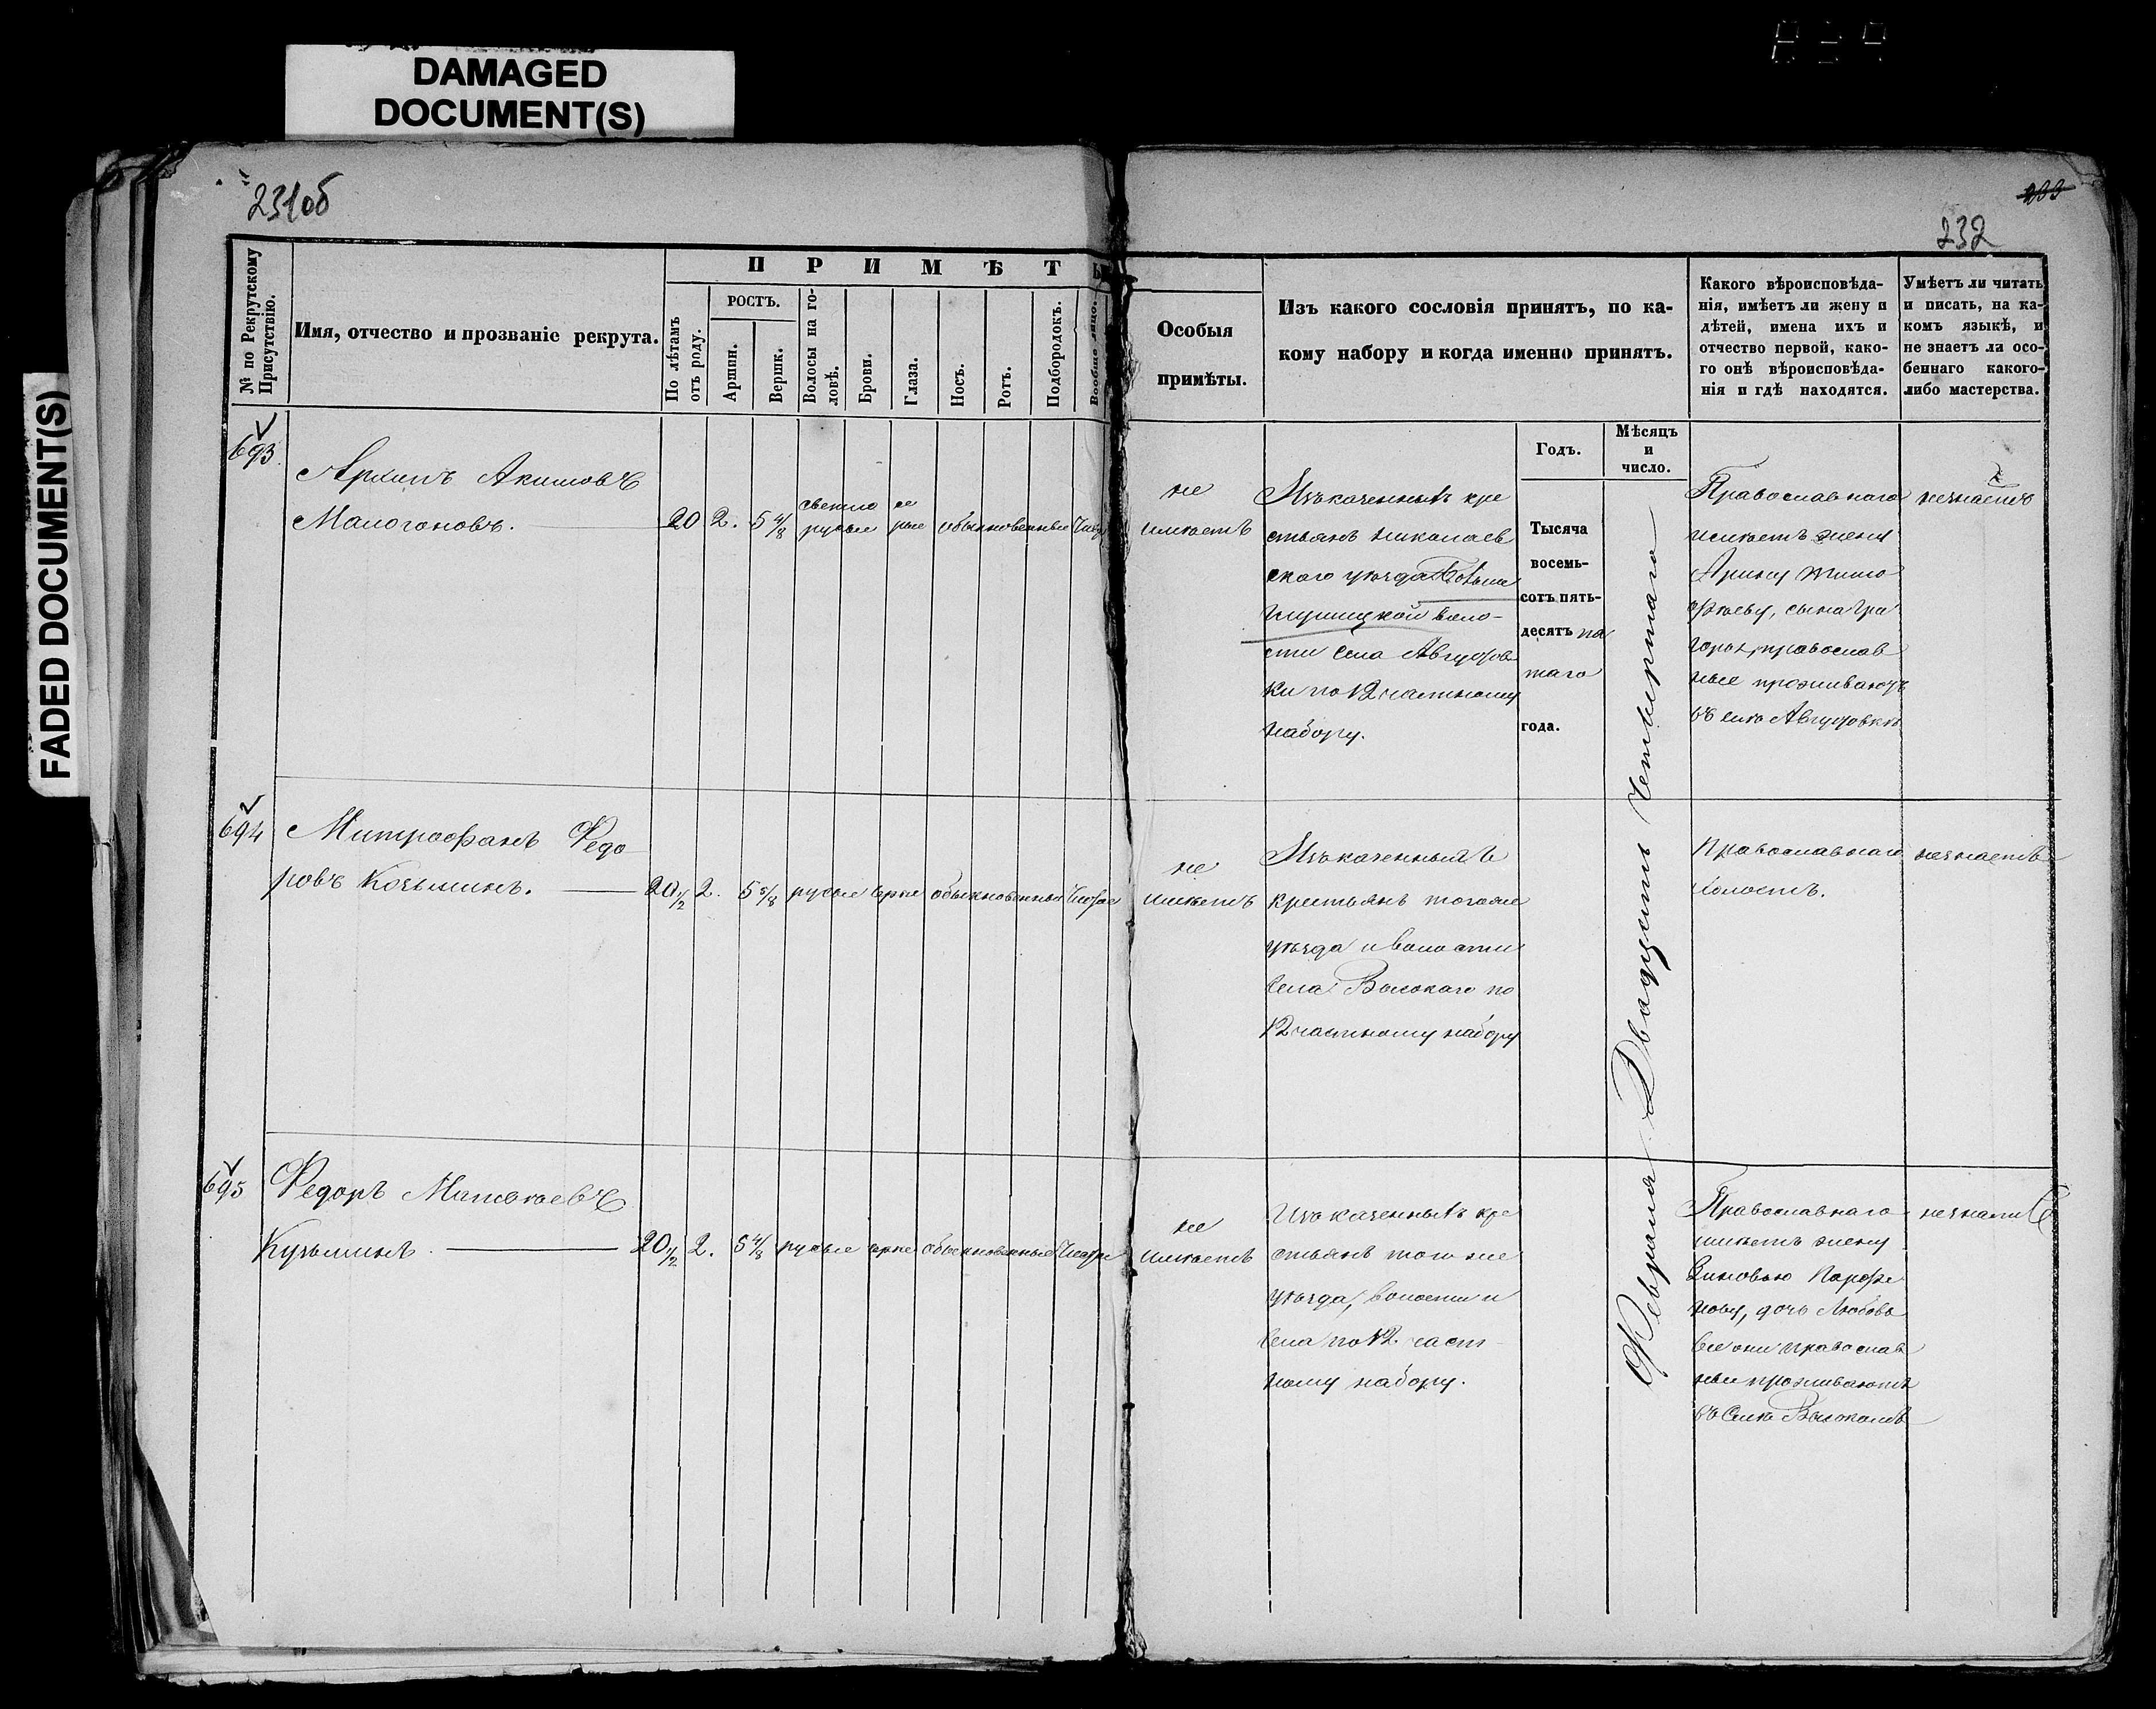 DAMAGED
DOCUMENT(S)
FADED DOCUMENT(S)
231об
233
232
№ по Рекрутскому
Присутствію.
Имя, отчество и прозваніе рекрута.
ПРИМѢТЫ
По лѣтамъ
отъ роду.
РОСТЪ.
Аршин.
Вершк.
Волосы на го-
ловѣ.
Брови.
Глаза.
Носъ.
Ротъ.
Подбородокъ.
Вообще лицо.
Особыя
примѣты.
Изъ какого сословія принятъ, по ка-
кому набору и когда именно принятъ.
Какого вѣроисповѣда-
нія, имѣетъ ли жену и
дѣтей, имена ихъ и
отчество первой, како-
го онѣ вѣроисповѣда-
нія и гдѣ находятся.
Умѣетъ ли читать
и писать, на ка-
комъ языкѣ, и
не знаетъ ли осо-
беннаго какого-
либо мастерства.
Годъ.
Мѣсяцъ
и
число.
693
Архипъ Акимовъ
Малогоновъ.
20 2. 5 4/8 светло русые се рые обыкновенные Чист
не
имѣетъ
Изъ казенныхъ кре
стьянъ Николаев
скаго уѣзда Больше
глушицкой воло-
сти села Августов
ки по 12 частному
набору.
Тысяча
восемь-
сотъ пять-
десятъ пя
таго
года.
Февраля Двадцать Четвертаго
Православнаго
имѣетъ жену
Арину Тимо
фѣеву, сына Гри
горья, православ
ные проживаютъ
въ селѣ Августовкѣ
незнаетъ
694
Митрофанъ Федо
ровъ Козьминъ.
20 1/2 2. 5 5/8 русые серые обыкновенные Чистое
не
имѣетъ
Изъ казенныхъ
крестьянъ тогоже
уѣзда и волости
села Высокаго по
12 частному набору
Православнаго
холостъ.
незнаетъ
695
Федоръ Матвѣевъ
Кузьминъ.
20 1/2 2. 5 4/8 русые серые обыкновенные Чистое
не
имѣетъ
Изъ казенныхъ кре
стьянъ того же
уѣзда, волости и
села по 12 част-
ному набору.
Православнаго
имѣетъ жену
Зиновью Парфе
нову, дочь Любовь
все они православ
ные проживаютъ
въ Селѣ Высокомъ
незнаетъ